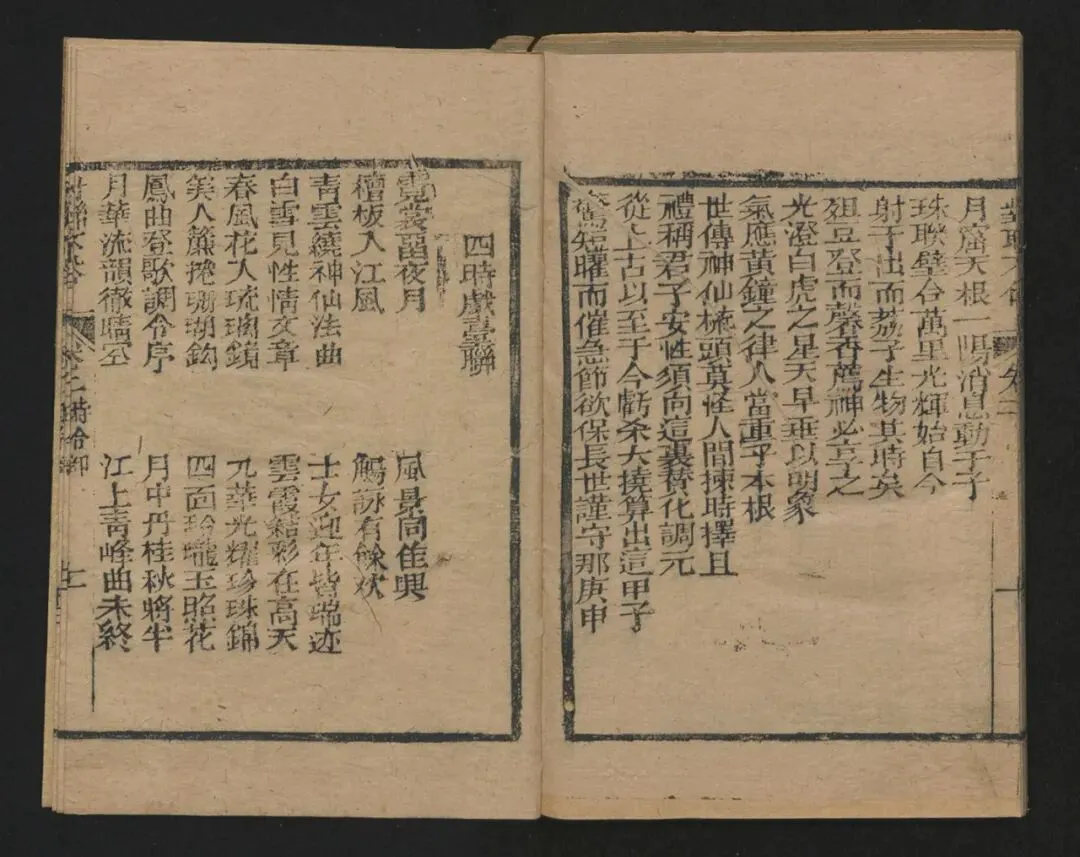 月窟天根一陽消息動于子
珠聯璧合萬里光輝始自今
射干出而荔子生物其時矣
俎豆登而馨香薦神必享之
光澄白虎之星天早垂以明象
氣應黃鐘之律人當重乎本根
世傳神仙梳頭莫怪人間揀時擇日
禮稱君子安性須向這裏贊化調元
從上古以至于今虧杀大撓算出這甲子
短曜而催急節欲保長世謹守那庚申
四時戲臺聯
霓裳留夜月 風景同佳興
檀板入江風 觴詠有餘欢
青雲繞神仙法曲 士女迎年皆瑞迹
白雪見性情文章 雲霞結彩在高天
春風花人琉璃鏡 九華光耀珍珠錦
美人簾捲珊瑚鈎 四面玲瓏玉照花
鳳曲登歌調令序 月中丹桂秋將半
月華流韻徹晴空 江上青峰曲未終
卷二 時令部